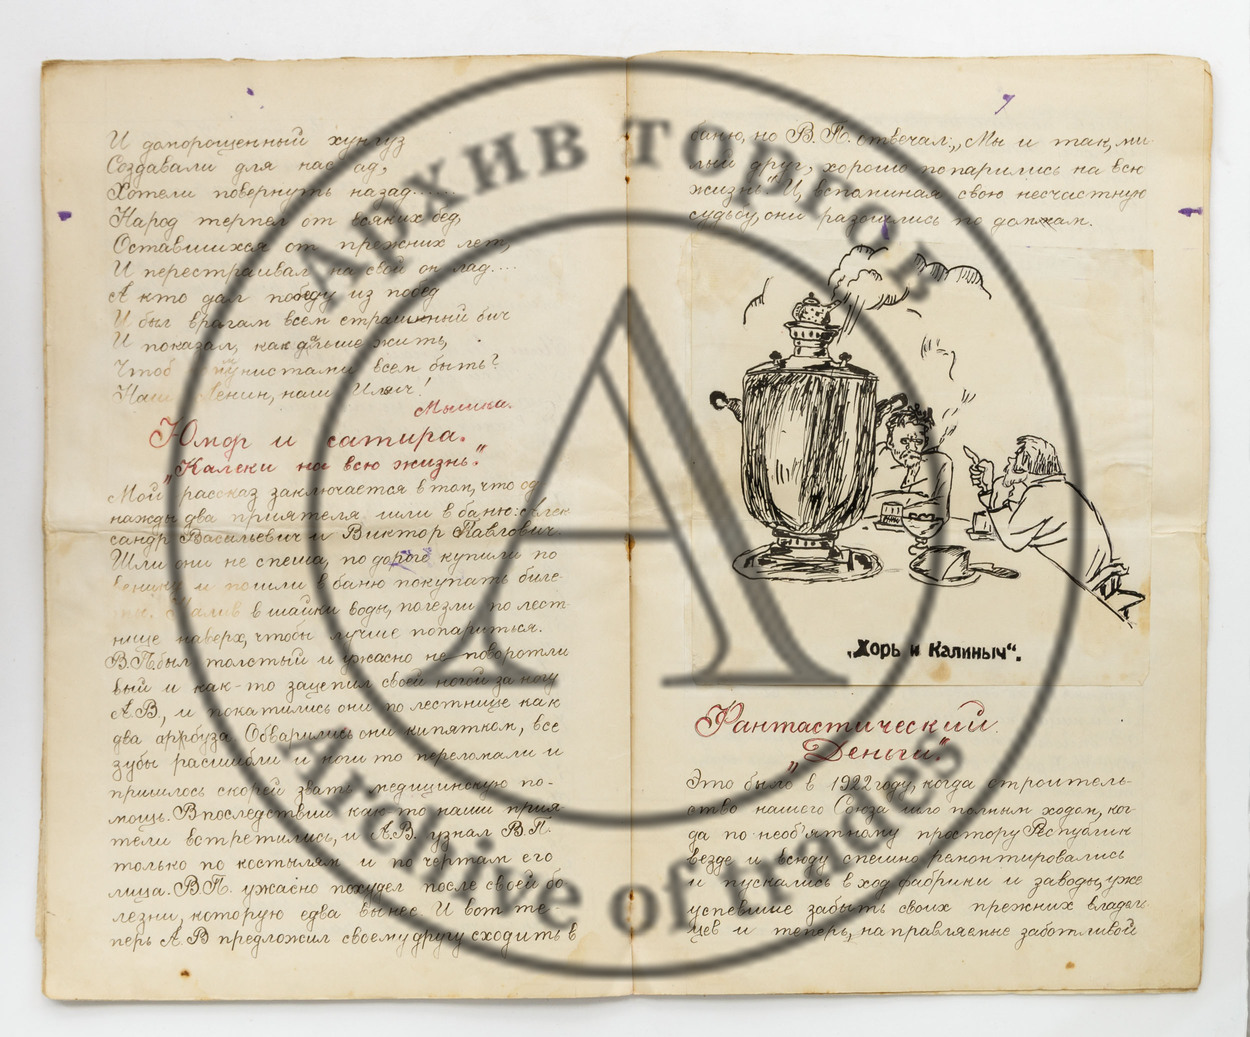 И доморощенный хунгуз
Создавали для нас ад,
Хотели повернуть назад......
Народ терпел от всяких бед,
Оставшихся от прежних лет,
И перестраивал на свой он лад....
А кто дал победу из побед
И был врагам всем страшный бич
И показал, как дальше жить,
Чтоб коммунистами всем быть?
Наш Ленин, наш Ильич!
Мышка.
Юмор и сатира.
„Калеки на всю жизнь."
Мой рассказ заключается в том, что од
нажды два приятеля шли в баню: Алек
сандр Васильевич и Виктор Павлович
Шли они не спеша, по дороге купили по
венику и пошли в баню покупать биле-
ты. Налив в шайки воды, полезли по лест-
нице наверх, чтобы лучше попариться.
В.П. был толстый и ужасно не поворотли
вый и как-то зацепил своей ногой за ногу
А.В., и покатились они по лестнице как
два арбуза. Обварились они кипятком, все
зубы расшибли и ноги то переломали и
пришлось скорей звать медицинскую по-
мощь. Впоследствии как-то наши прия-
тели встретились, и А.В. узнал В.П.
только по костылям и по чертам его
лица. В.П. ужасно похудел после своей бо
лезни, которую едва вынес. И вот те-
перь А.В предложил своему другу сходить в
баню, но В.П. отвечал: „Мы и так, ми-
лый друг, хорошо попарились на всю
жизнь". И, вспоминая свою несчастную
судьбу, они разошлись по домам.
„Хорь и Калиныч".
Фантастический.
„Деньги".
Это было в 1922 году, когда строитель-
ство нашего Союза шло полным ходом, ког-
да по необъятному простору Республик
везде и всюду спешно ремонтировались
и пускались в ход фабрики и заводы, уже
успевшие забыть своих прежних владель-
цев и теперь, направляемые заботливой
АРХИВ ТОРГУСЬ
Archive of Tragus